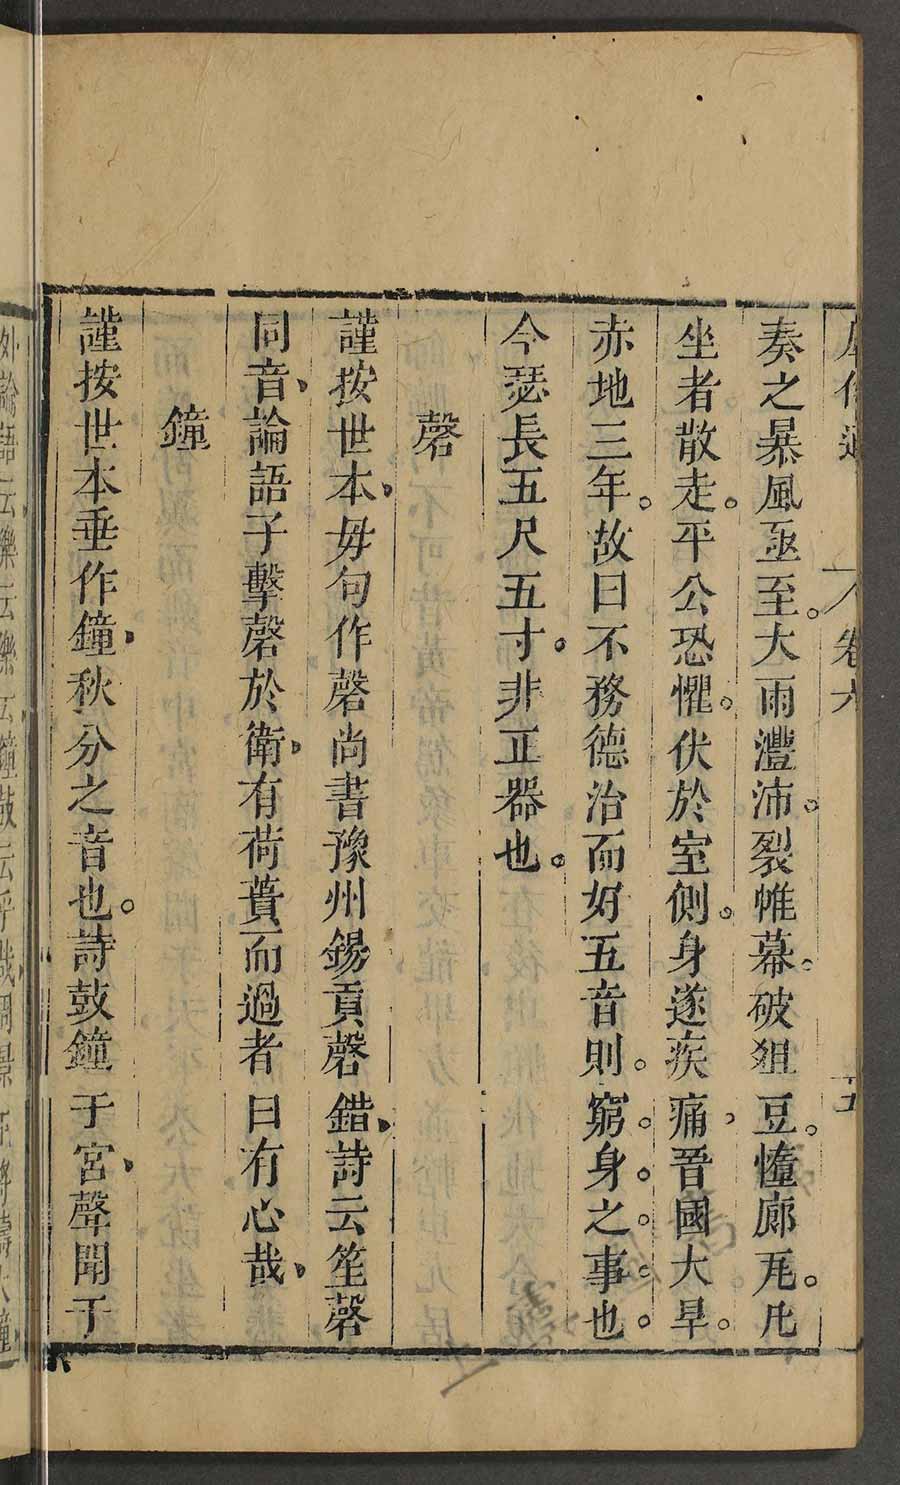 卷六
五
奏之暴風亟至。大雨灃沛。裂帷幕。破狙豆。墮廊瓦。凡
坐者散走。平公恐懼。伏於室側。身遂疾痛，晉國大旱。
赤地三年。故曰不務德治而好五音則。窮。身。之。事。也。
今瑟長五尺五寸。非正器也。
磬
謹按世本，毋句作磬尚書豫州錫貢磬錯，詩云笙磬
同音，論語子擊磬於衛，有荷蕢而過者曰有心哉，
鐘
謹按世本垂作鐘，秋分之音也。詩鼓鐘于宮，聲聞于
外論語云樂云樂云鐘鼓云乎哉周景王將鑄大鐘